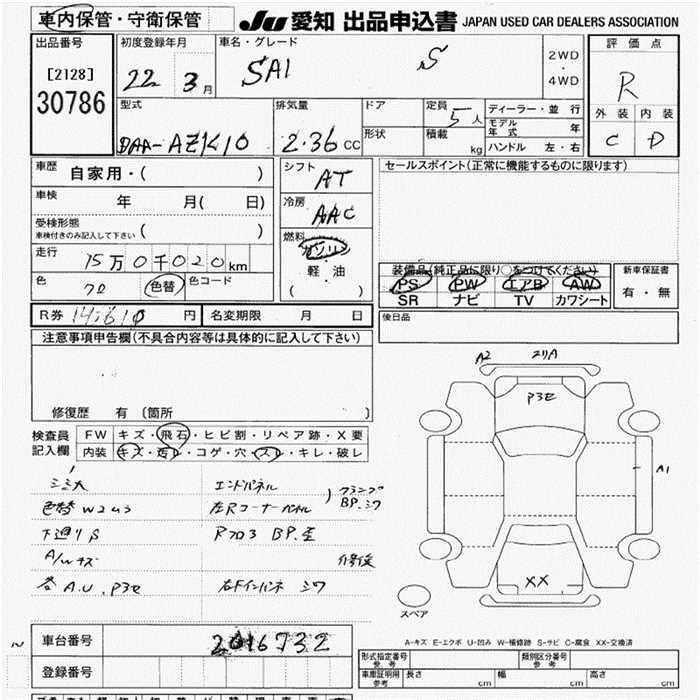 車内保管・守衛保管
JU 愛知 出品申込書 JAPAN USED CAR DEALERS ASSOCIATION
出品番号
[2128]
30786
初度登録年月
22 3月
車名・グレード
SAI S
2WD
・
4WD
評価点
R
外装 内装
C D
型式
DAA-AZK10
排気量
2.36 CC
ドア
形状
定員
5人
積載
kg
ディーラー・並行
モデル年式 年
ハンドル 左・右
車歴 自家用・( )
車検 年 月( 日)
受検形態
車検付きのみ記入して下さい ( )
走行 15万0千020km
色 クロ 色替 色コード
シフト
AT
冷房
AAC
燃料
ガソリン
・
軽・油
( )
セールスポイント(正常に機能するものに限ります)
装備品(純正品に限り○をつけてください)
PS PW エアB AW
SR ナビ TV カワシート
新車保証書
有・無
R券 14610円 名変期限 月 日
後日品
注意事項申告欄(不具合内容等は具体的に記入して下さい)
修復歴 有 (箇所 )
検査員
記入欄
FW キズ・飛石・ヒビ割・リペア跡・X要
内装 キズ・汚レ・コゲ・穴・スレ・キレ・破レ
色替 W2 U3
下廻りS
A/Wキズ
各A.U.
エンドパネル
左Rコーナーパネル
Rフロア BP.歪
BP.シワ
右Fインパネ シワ
A2
A1
XX
スペア
A-キズ E-エクボ U-凹み W-補修跡 S-サビ C-腐食 XX-交換済
車台番号 2016732
登録番号
形式指定番号
参考
類別区分番号
参考
車庫証明用
参考
長さ cm 幅 cm 高さ cm